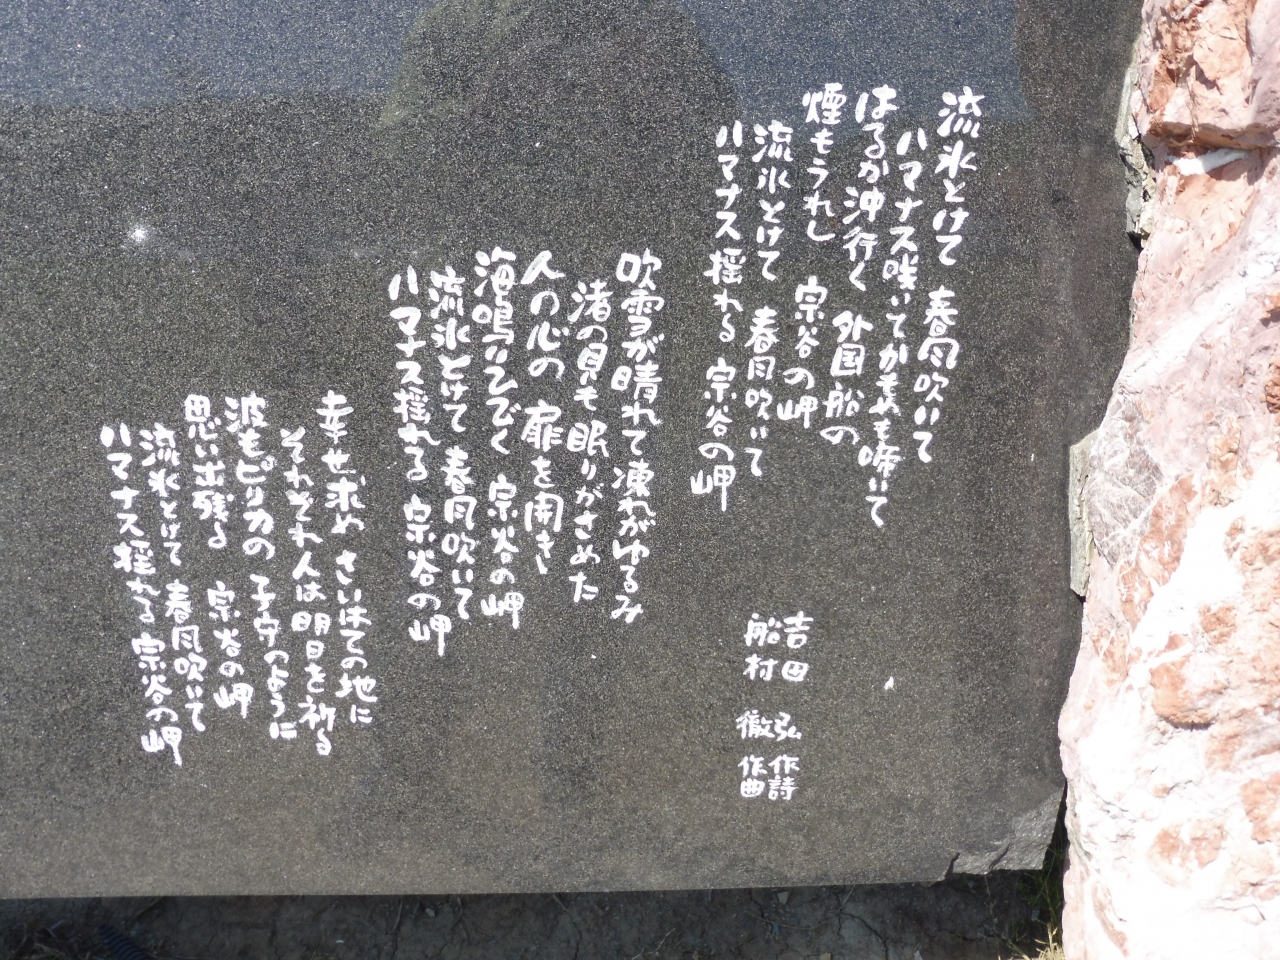 流氷とけて 春風吹いて
ハマナス咲いてかもめも啼いて
はるか沖行く 外国船の
煙もうれし 宗谷の岬
流氷とけて 春風吹いて
ハマナス揺れる 宗谷の岬
吹雪が晴れて 凍れがゆるみ
渚の貝も眠りがさめた
人の心の 扉を開き
海鳴りひびく 宗谷の岬
流氷とけて 春風吹いて
ハマナス揺れる 宗谷の岬
幸せ求め さいはての地に
それぞれ人は明日を祈る
波もピリカの 子守のように
思い出残る 宗谷の岬
流氷とけて 春風吹いて
ハマナス揺れる 宗谷の岬
吉田 弘 作詩
船村 徹 作曲